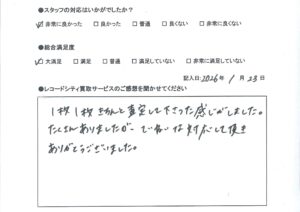 ●スタッフの対応はいかがでしたか?
☑非常に良かった □良かった □普通 □良くない □非常に良くない
●総合満足度
☑大満足 □満足 □普通 □満足していない □非常に満足していない
記入日:2026年 1月 23日
●レコードシティ買取サービスのご感想を聞かせてください
1枚1枚きちんと査定して下さった感じがしました。
たくさんありましたが ていねいな対応して頂き
ありがとうございました。